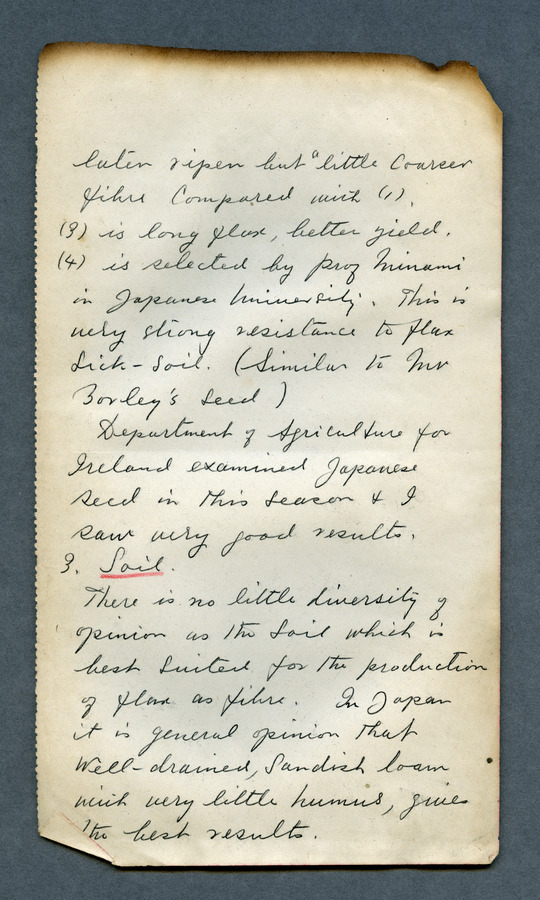 later ripen but a little Coarser
fibre Compared with (1).
(3) is long flax, better yield.
(4) is selected by prof Minami
in Japanese University. This is
very strong resistance to flax
Sick-Soil. (Similar to Mr
Borley's Seed)
Department of Agriculture for
Ireland examined Japanese
seed in this Season & I
saw very good results.
3. Soil.
There is no little diversity of
opinion as the Soil which is
best Suited for the production
of flax as fibre. In Japan
it is general opinion that
Well-drained, Sandish loam
with very little humus, gives
the best results.